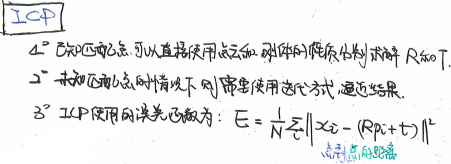 ICP
1° 已知匹配点,可以直接使用点云和刚体的性质分别求解 R和T.
2° 未知匹配点的情况下则需要使用迭代方式,逼近结果.
3° ICP使用的误差函数为: E = 1/N Σᵢ ‖xᵢ - (Rpᵢ+t)‖²
点到点的距离